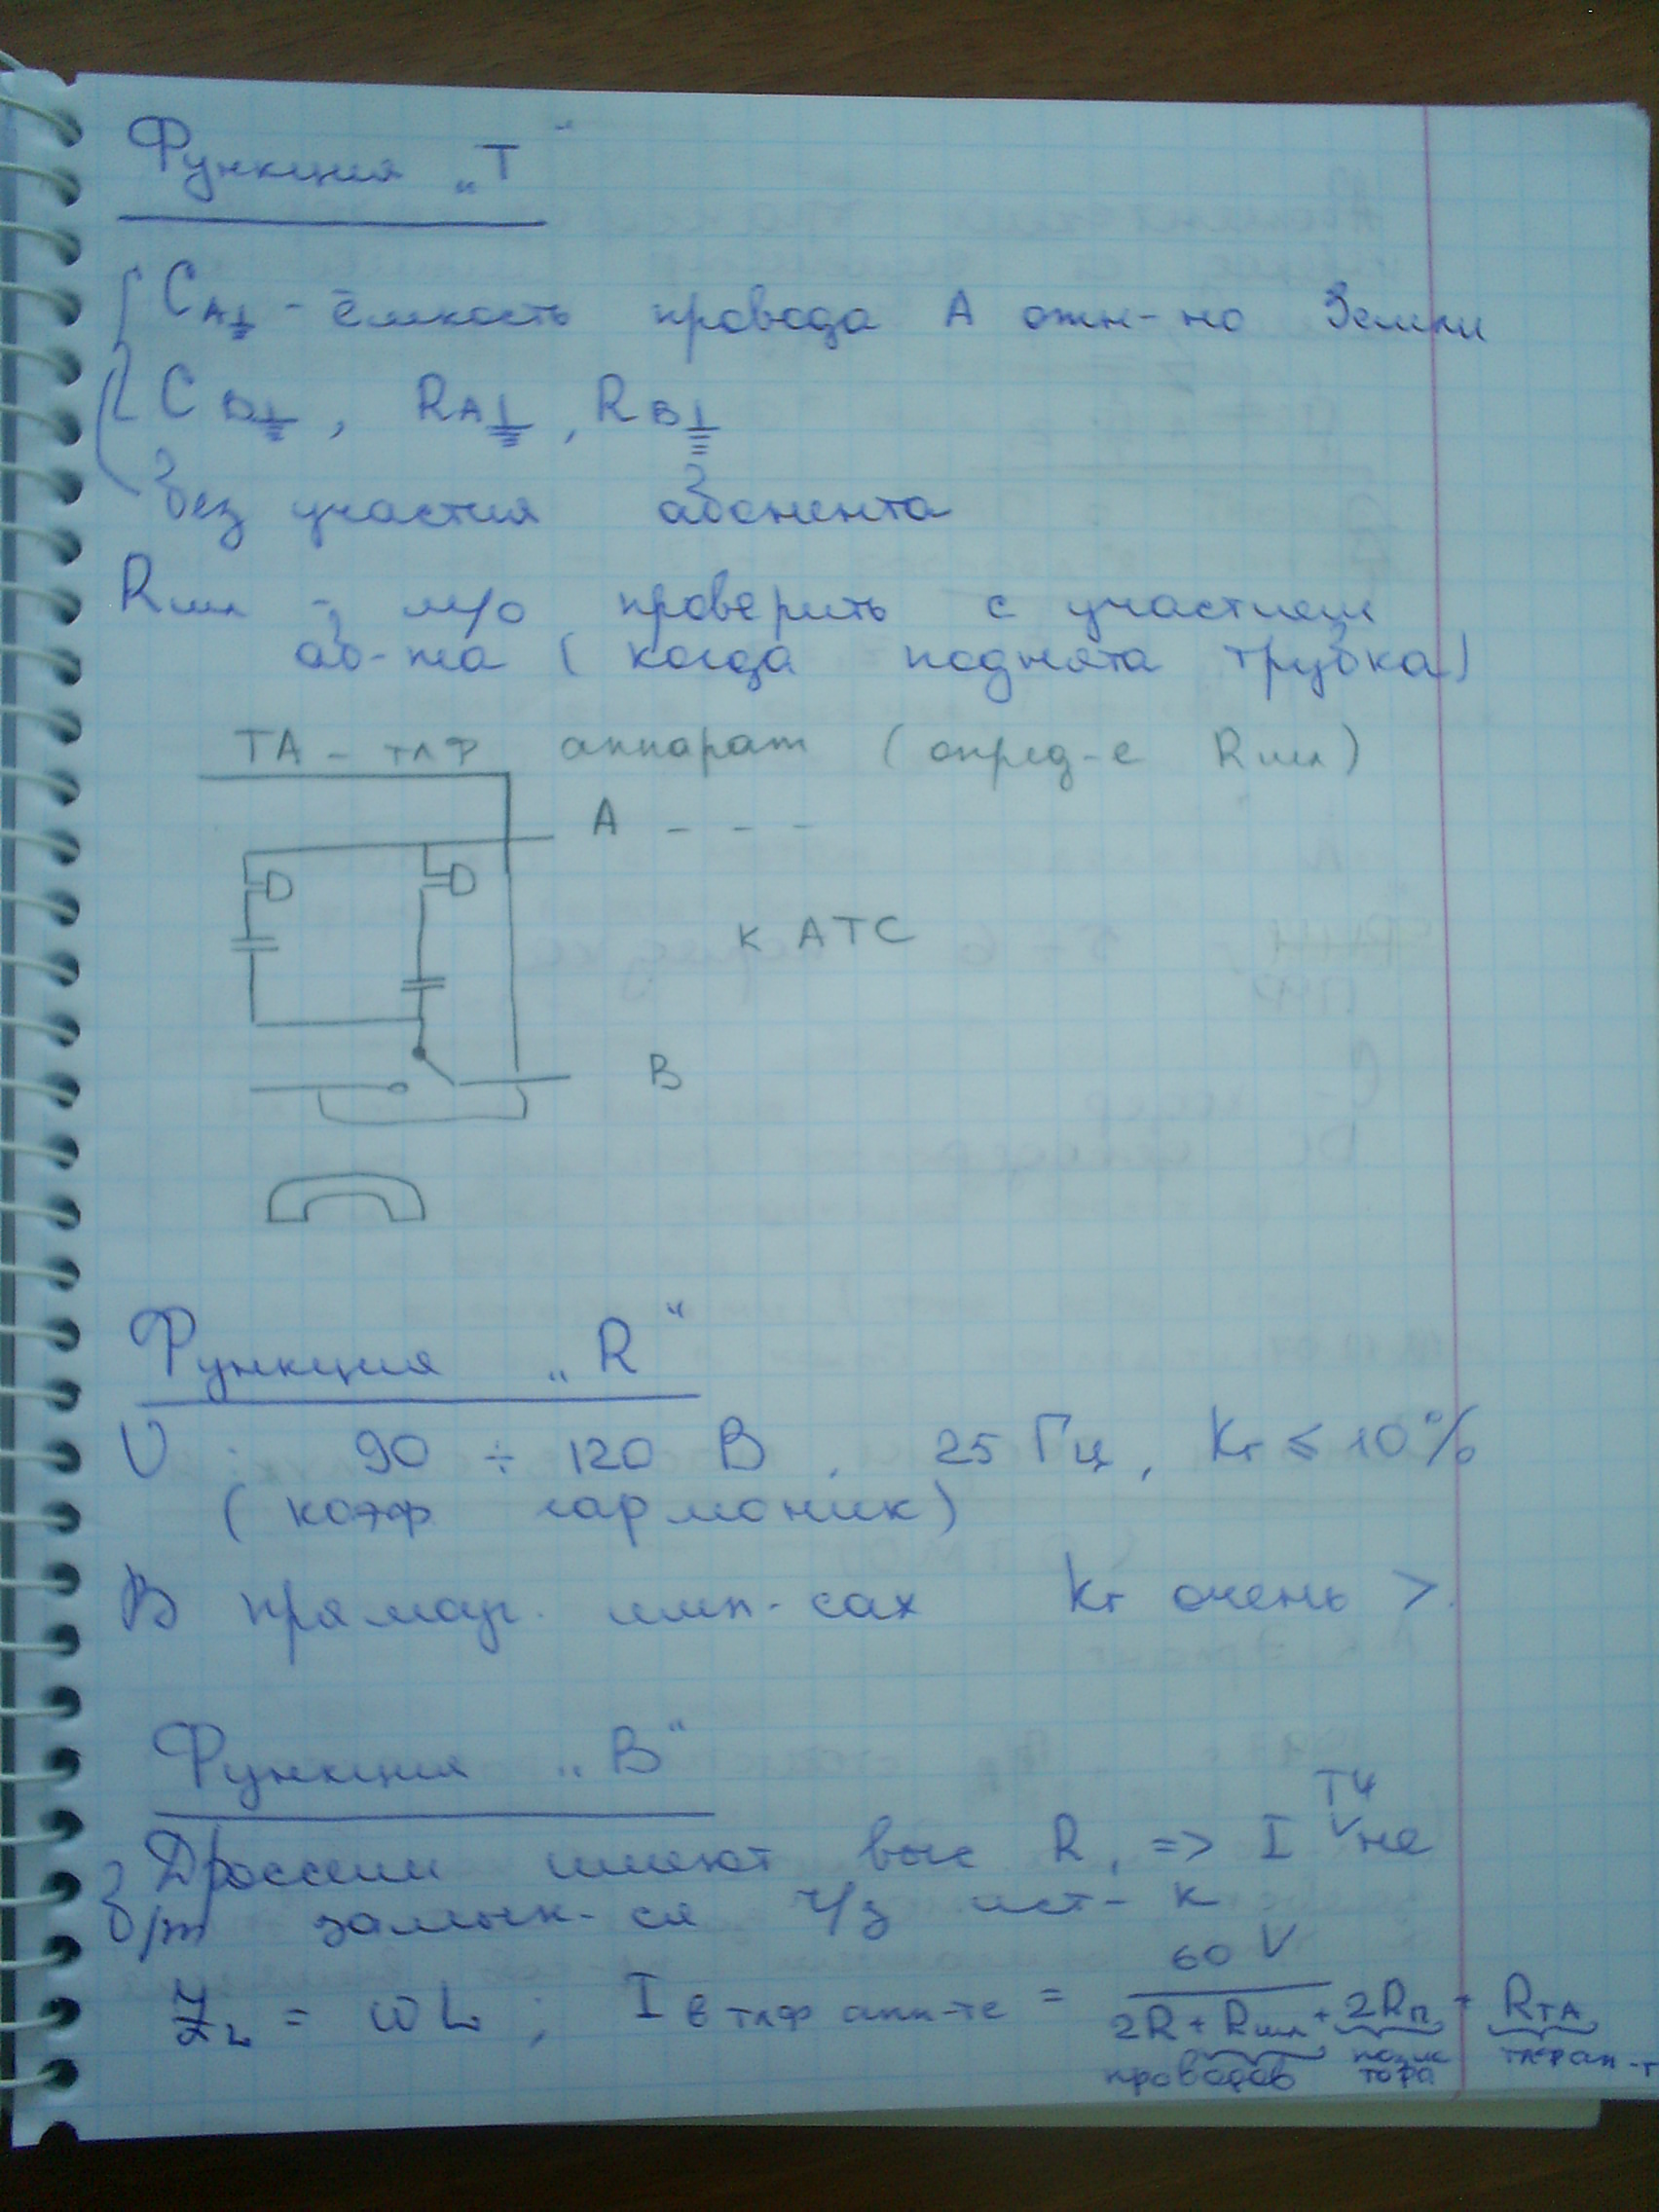 Функция „Т“
C A⏚ - ёмкость провода А отн-но Земли
C B⏚, R A⏚, R B⏚
без участия абонента
Rшл - м/о проверить с участием
аб-та (когда поднята трубка)
ТА - тлф аппарат (опред-е Rшл)
А - - -
к АТС
В
Функция „R“
U: 90 ÷ 120 В, 25 Гц, Kг ≤ 10%
(коэф гармоник)
В прямоуг. имп-сах Kг очень >.
Функция „В“
Дроссели имеют выс R, => I ТЧ не
замык-ся ч/з ист-к
Z_L = ωL ; I в тлф апп-те = 60 V / 2R + Rшл + 2Rп + R_ТА
проводов тлф ап-т